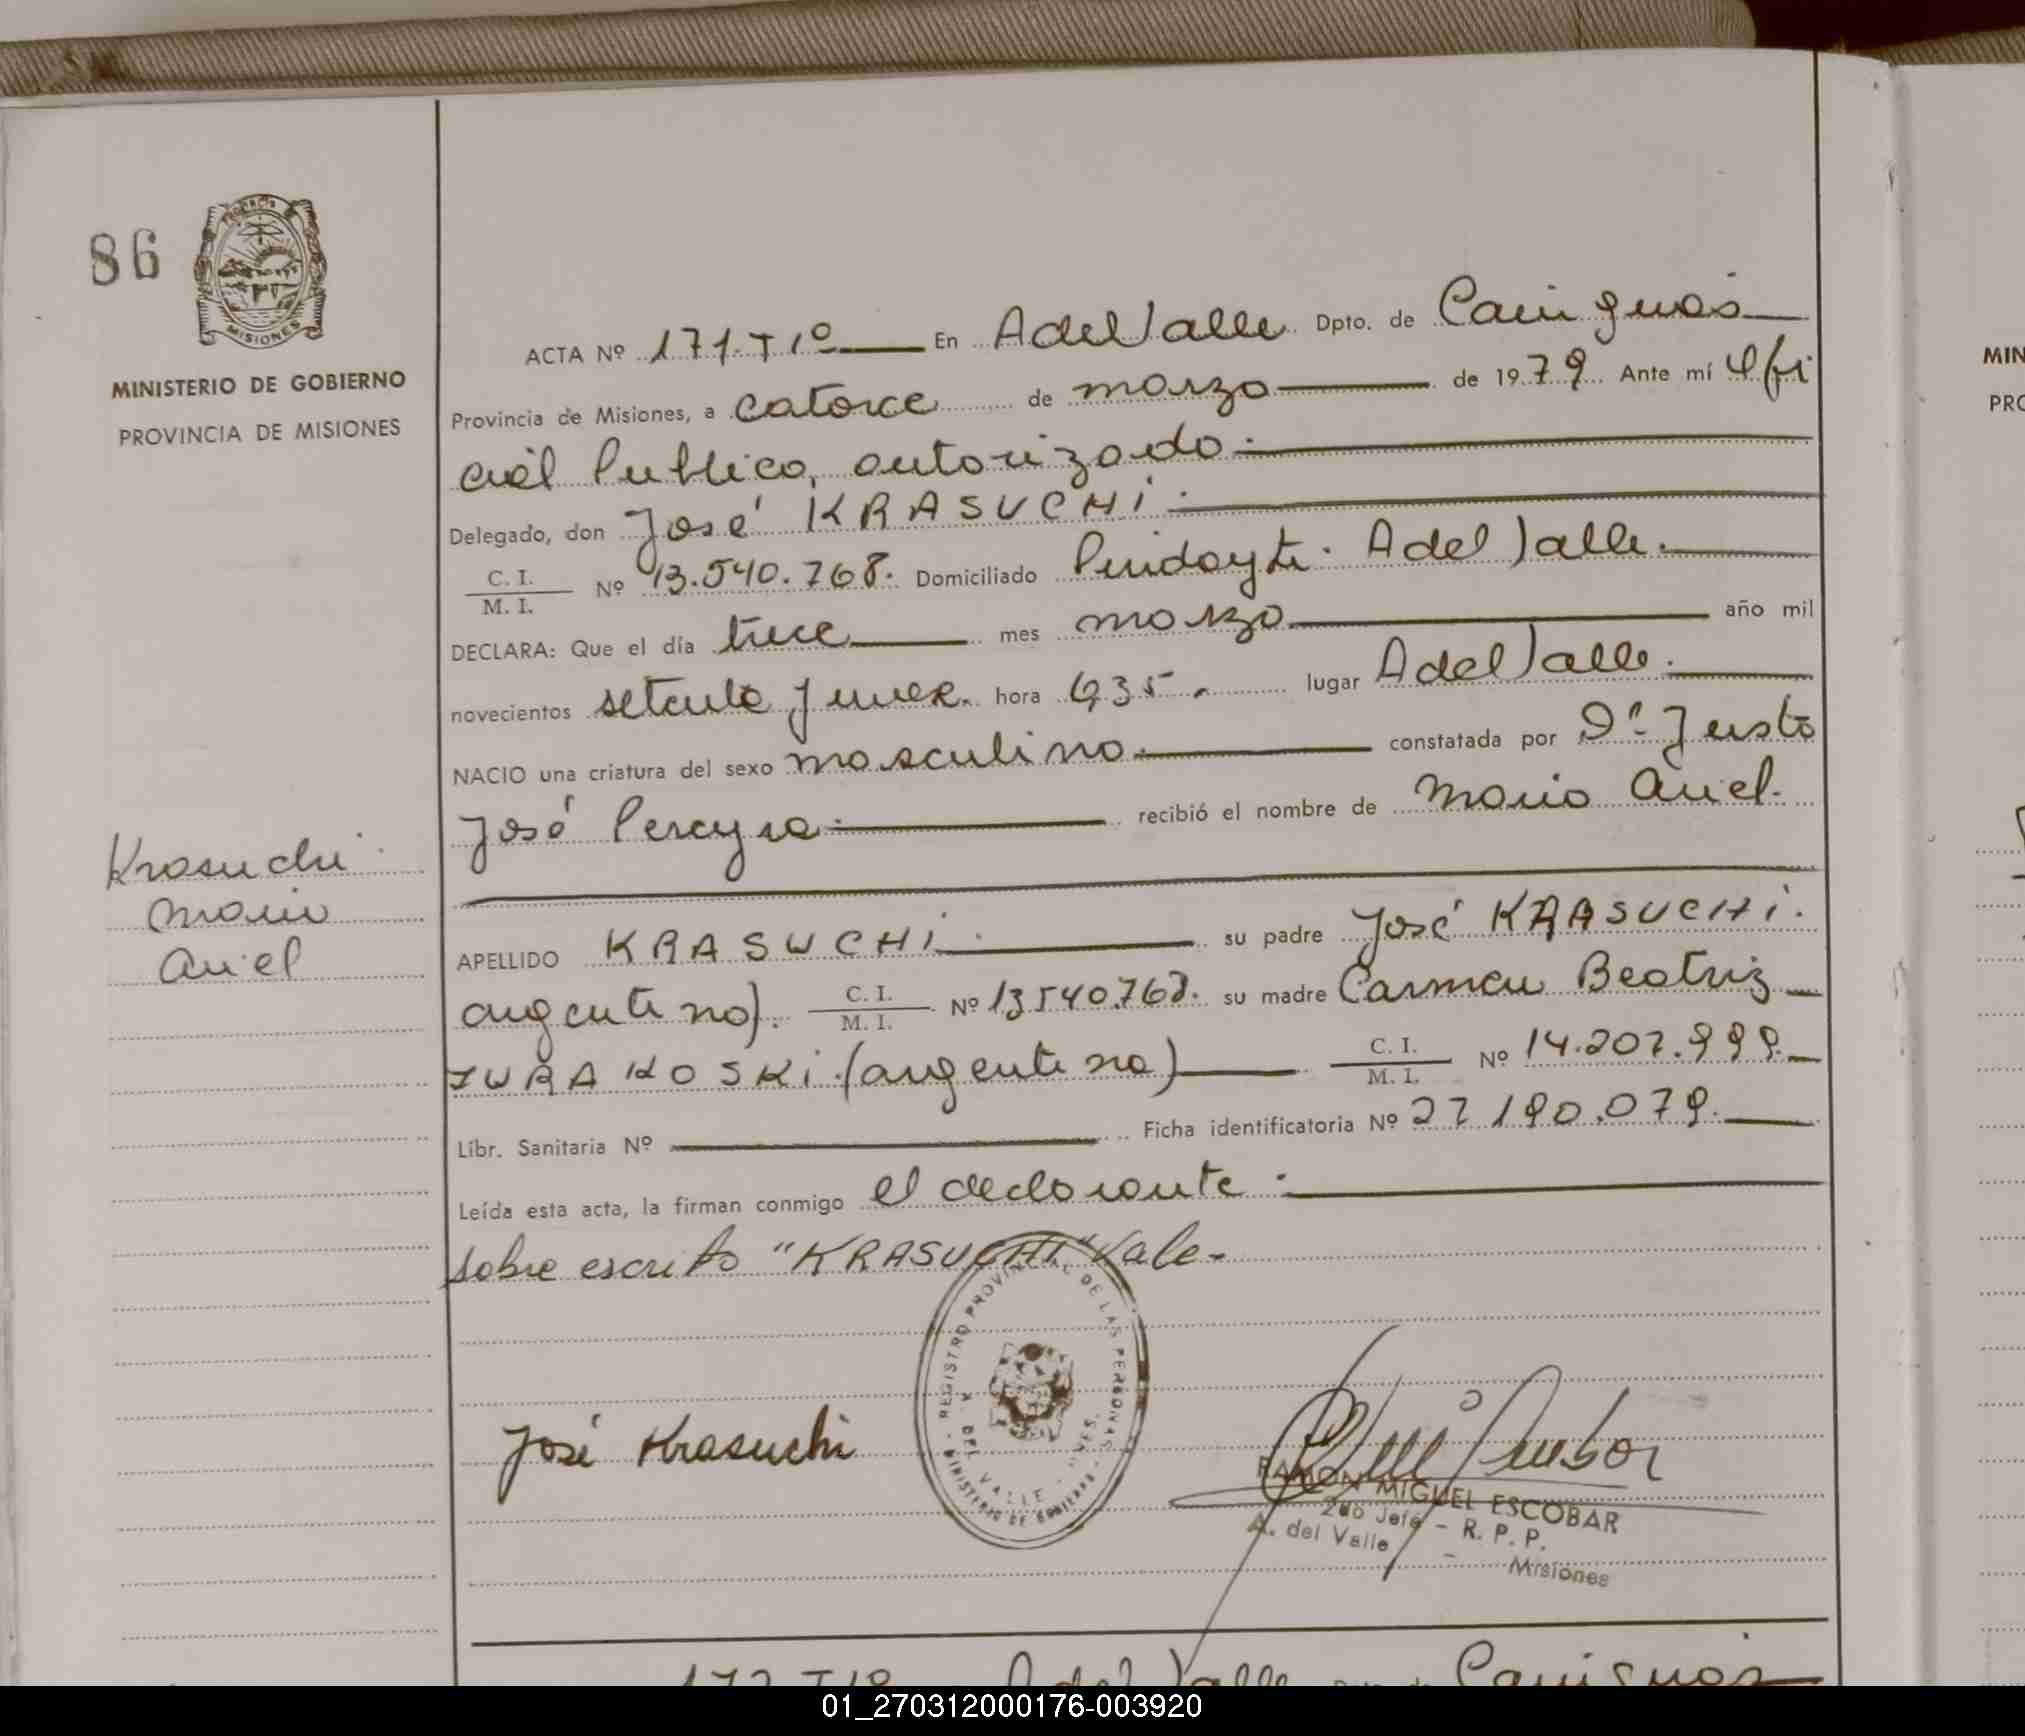 86
MISIONES
MINISTERIO DE GOBIERNO
PROVINCIA DE MISIONES
ACTA Nº 171-Tº1º En A del Valle Dpto. de Cainguás
Provincia de Misiones, a catorce de marzo de 1979 Ante mí Ofi
cial Publico, autorizado
Delegado, don José KRASUCHI
C. I. / M. I. Nº 13.540.768. Domiciliado A del Valle.
DECLARA: Que el día trece mes marzo año mil
novecientos setenta y nueve. hora 6,35 lugar A del Valle.
NACIO una criatura del sexo masculino constatada por Dr. Justo
José Pereyra recibió el nombre de Mario Ariel.
Krasuchi
Mario
Ariel
APELLIDO KRASUCHI su padre José KRASUCHI.
argentino). C. I. / M. I. Nº 13540.768. su madre Carmen Beatriz
(argentina) C. I. / M. I. Nº 14.207.999.
Libr. Sanitaria Nº Ficha identificatoria Nº 27 190.079.
Leída esta acta, la firman conmigo el declarante
sobre escrito "KRASUCHI" Vale-
REGISTRO PROVINCIAL DE LAS PERSONAS
A. DEL VALLE - MNES.
MINISTERIO DE GOBIERNO
José Krasuchi
RAMON MIGUEL ESCOBAR
2do Jefe - R. P. P.
A. del Valle - Misiones
172-Tº1º A del Valle Cainguás
MIN
PRO
01_270312000176-003920